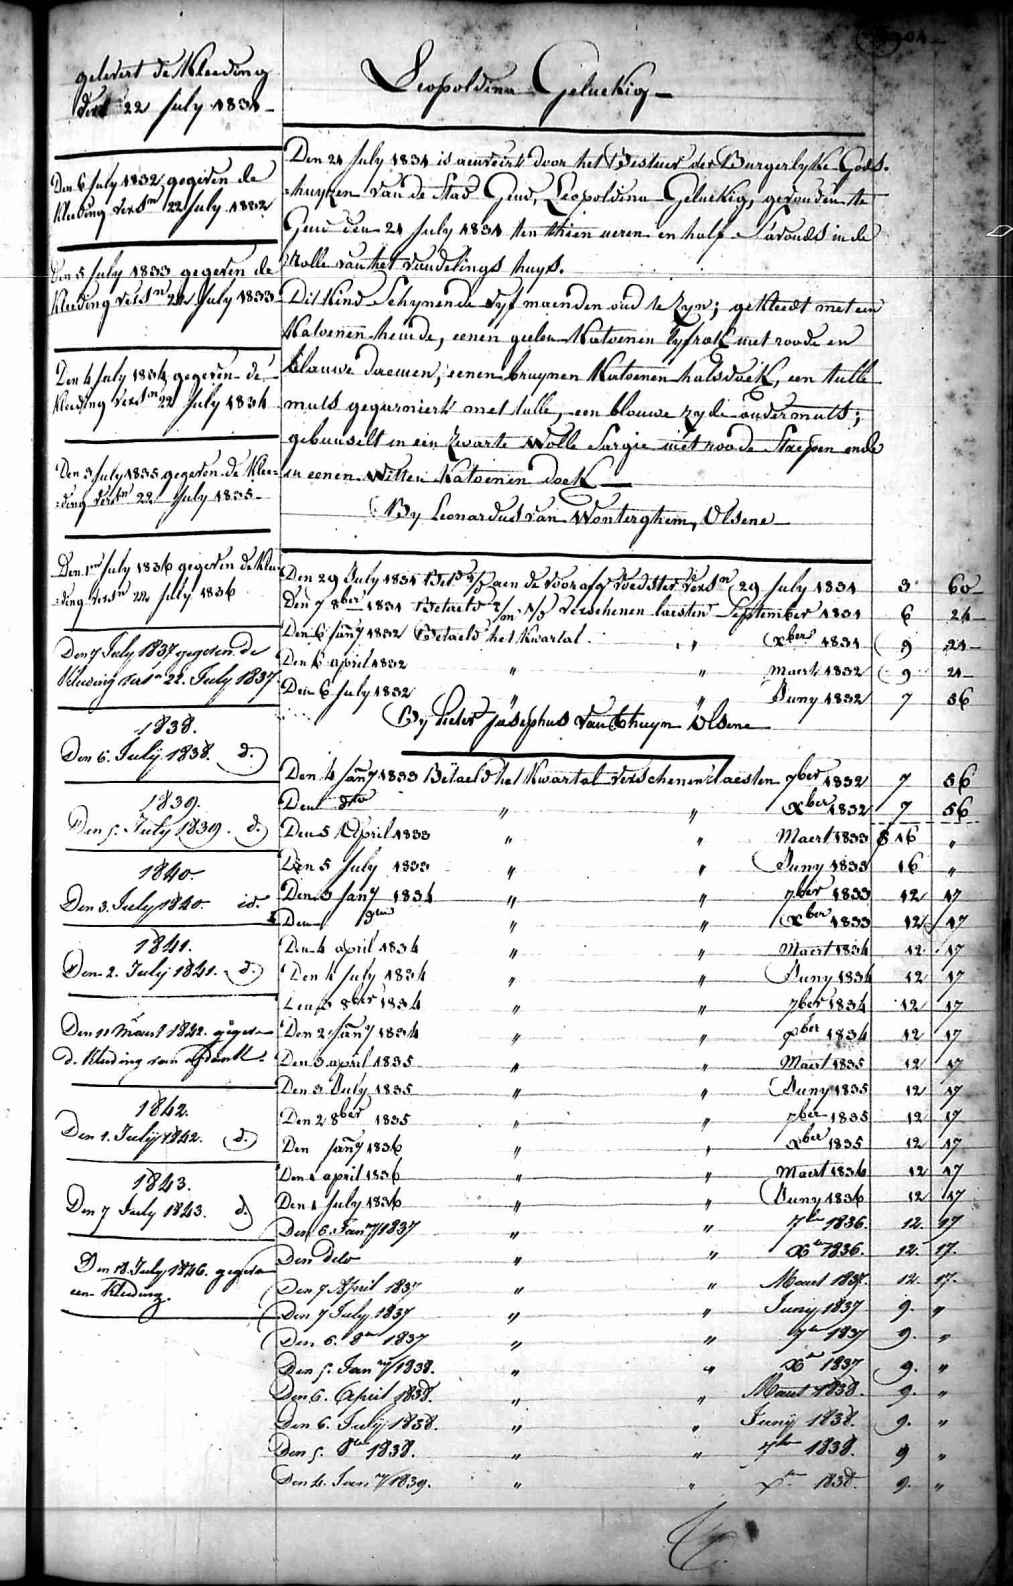 gelevert de Kleeding
dert 22 July 1831
Den 6 July 1832 gegeven de
Kleeding versn 22 July 1832
Den 5 July 1833 gegeven de
Kleeding versn 22 July 1833
Den 4 July 1834 gegeven de
Kleeding versn 22 July 1834
Den 3 July 1835 gegeven de Klee=
=ding versn 22 July 1835
Den 1en July 1836 gegeven de Klee
=ding versn 22 July 1836
Den 7 July 1837 gegeven de
Kleeding versn 22 July 1837
1838.
Den 6. July 1838. d.
1839.
Den 5. July 1839. d.
1840
Den 3. July 1840 id.
1841.
Den 2. July 1841. d.
Den 11 Maert 1842. gegeven
d. Kleeding van
1842.
Den 1. July 1842. d.
1843.
Den 7 July 1843. d.
Den 18 July 1846. gegeven
een Kleeding.
Leopoldina Geluckig
Den 21 July 1831 is door het Bestuer der Burgerlyke Gods=
=huyzen van de Stad Gend, Leopoldina Geluckig, gevonden te
Gend den 21 July 1831 ten thien ueren en half s'avonds in de
Rolle van het vondelings huys.
Dit Kind schynende vyf maenden oud te zyn; gekleedt met een
Katoenen hemde, eenen geelen Katoenen lyfrok met roode en
blauwe, eenen bruynen Katoenen halsdoek, een tulle
muts gegarniert met tulle, een blauwe zyde ondermuts;
gebunselt in een zwarte Wolle Sargie met roode Streepen ende
in eenen Witten Katoenen doek
By Leonardus van Wonterghem, Olsene
Den 29 July 1831 aen de voorafg voedster versn 29 July 1831 3 60
Den 7 8ber 1831 Betaeld verschenen laesten September 1831 6 24
Den 6 Jany 1832 Betaeld het Kwartal " xber 1831 9 24
Den 6 april 1832 " " Maert 1832 9 24
Den 6 July 1832 " " Juny 1832 7 56
By Pieter Josephus Olsene
Den 4 Jany 1833 Betaeld het Kwartal verschenen laesten 7ber 1832 7 56
Den dto " " xber 1832 7 56
Den 5 April 1833 " " Maert 1833 16 "
Den 5 July 1833 " " Juny 1833 16 "
Den 3 Jany 1834 " " 7ber 1833 12 17
Den " " xber 1833 12 17
Den 4 april 1834 " " Maert 1834 12 17
Den 4 July 1834 " " Juny 1834 12 17
Den 3 8ber 1834 " " 7ber 1834 12 17
Den 2 Jany 1834 " " xber 1834 12 17
Den 3 april 1835 " " Maert 1835 12 17
Den 3 July 1835 " " Juny 1835 12 17
Den 2 8ber 1835 " " 7ber 1835 12 17
Den Jany 1836 " " xber 1835 12 17
Den 1 april 1836 " " Maert 1836 12 17
Den 1 July 1836 " " Juny 1836 12 17
Den 6. Jany 1837 " " 7ber 1836. 12. 17
Den dito " " xber 1836. 12. 17.
Den 7 April 1837 " " Maert 1837. 12. 17.
Den 7 July 1837 " " Juny 1837 9. "
Den 6. 8ber 1837 " " 7ber 1837 9. "
Den 5. Jany 1838. " " xber 1837 9. "
Den 6. April 1838. " " Maert 1838. 9. "
Den 6. July 1838. " " Juny 1838. 9. "
Den 5. 8ber 1838. " " 7ber 1838. 9 "
Den 4. Jany 1839. " " xber 1838. 9. "